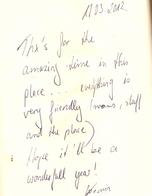 11 03 2012
This's for the
amazing time in this
place... everything is
very friendly (rooms, staff
and the place)
Hope it'll be a
wonderfull year!